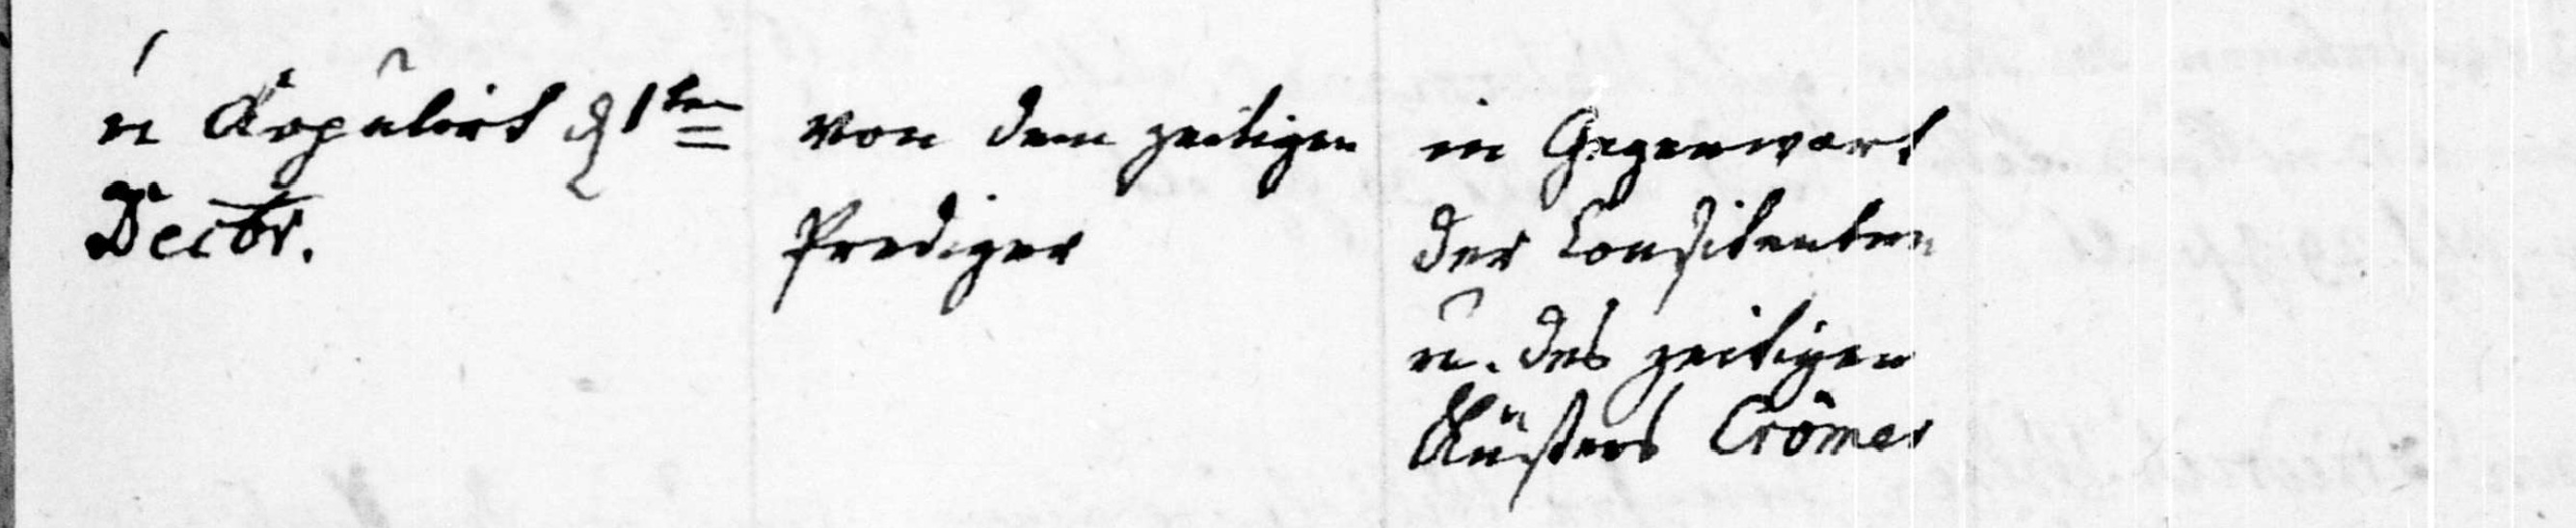 u Kopulirt d 1ten von dem zeitigen in Gegenwart
Decbr. Prediger der Consitenten
u. des zeitigen
Küsters Crömer